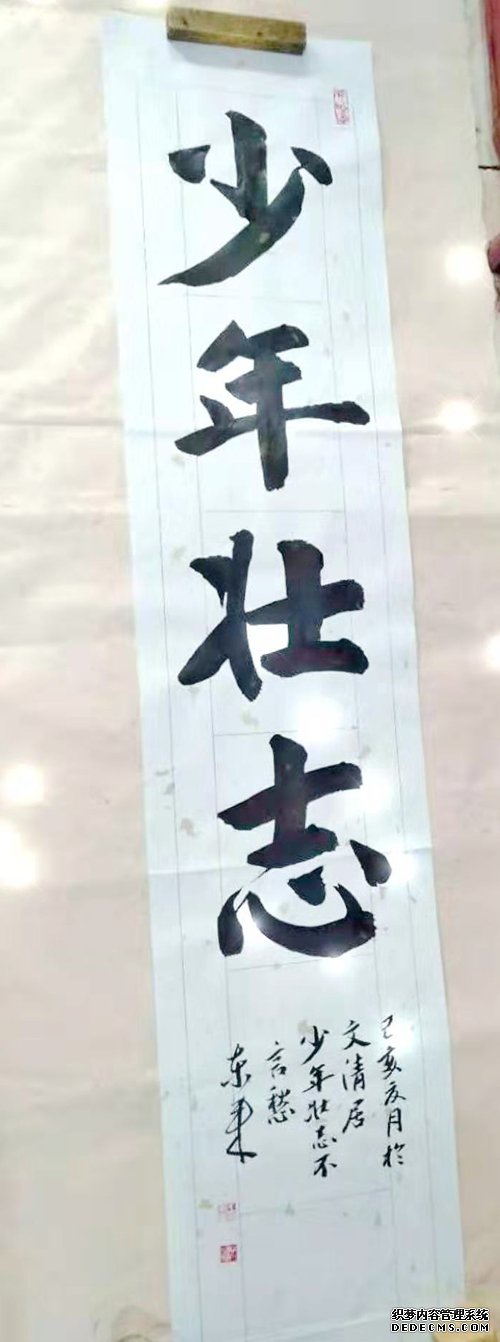 少年壮志
己亥夏月於
文清居
少年壮志不
言愁
东来
织梦内容管理系统
DEDECMS.COM